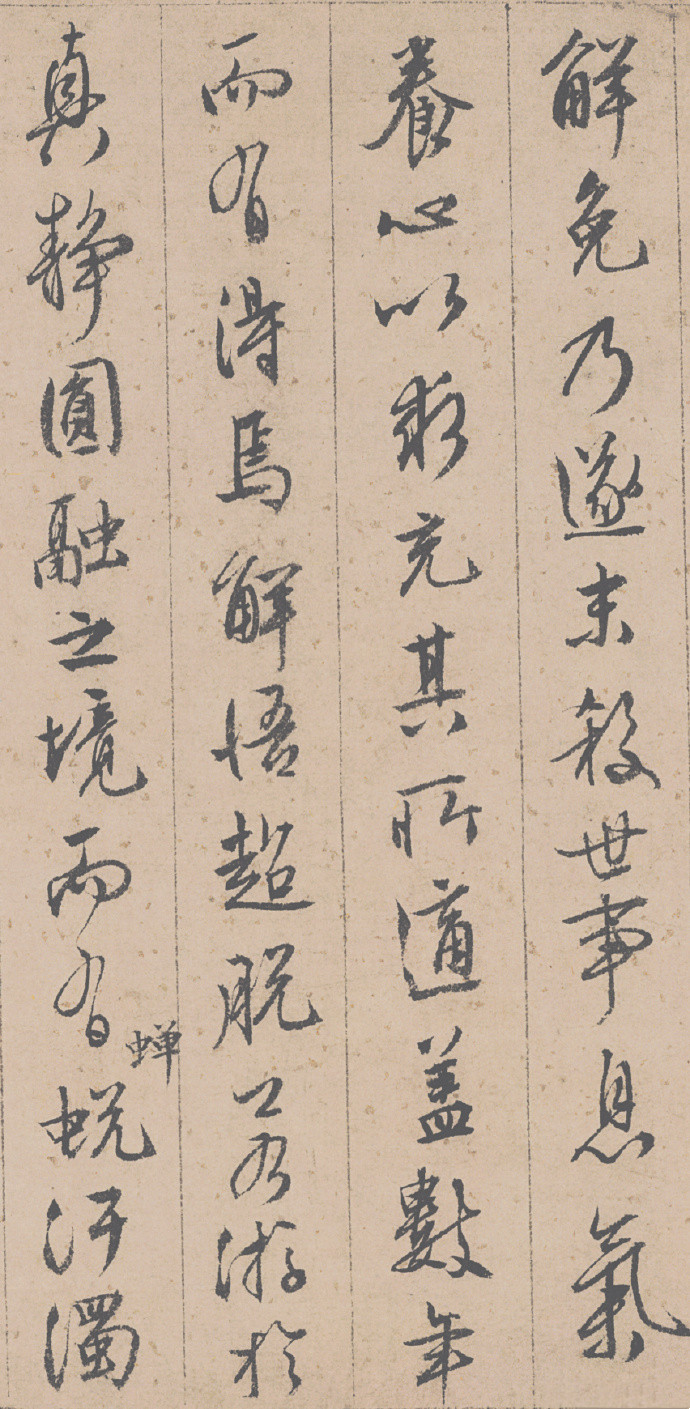 解免乃遂末殺世事息氣
養心以求充其所適蓋數年
而有得焉解悟超脫游於
真靜圓融之境而有蟬蛻汙濁